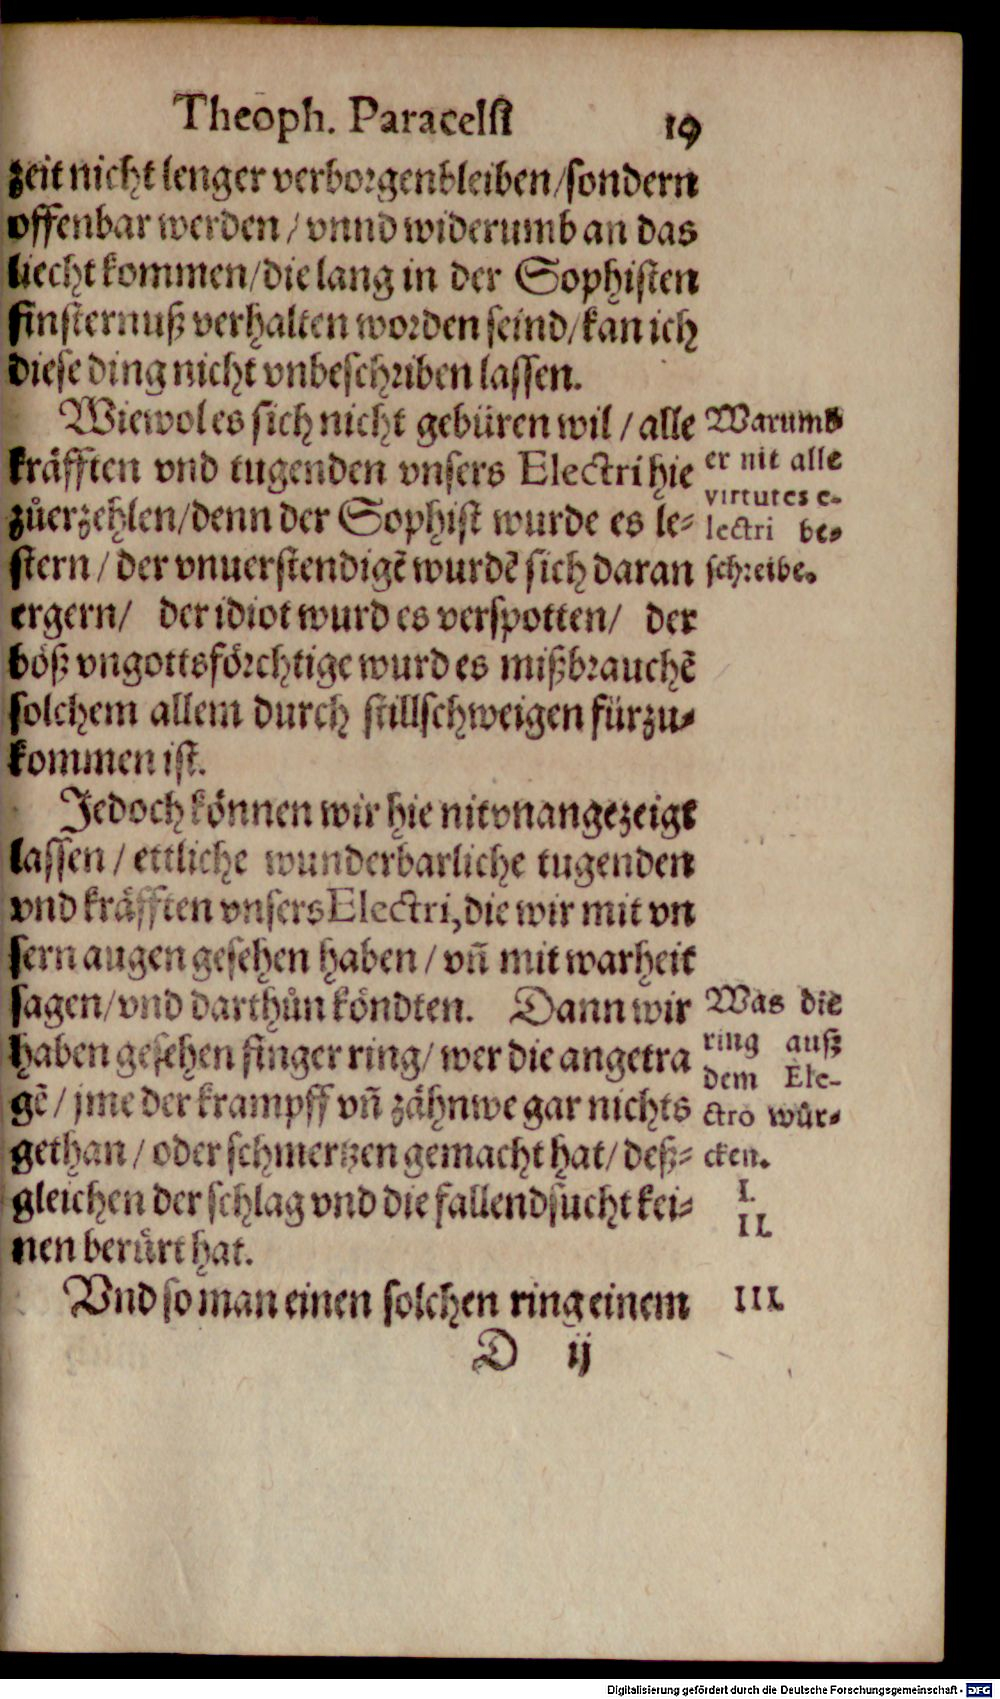 Theoph. Paracelsi 19
zeit nicht lenger verborgen bleiben / sondern
offenbar werden / vnnd widerumb an das
liecht kommen / die lang in der Sophisten
finsternuß verhalten worden seind / kan ich
diese ding nicht vnbeschriben lassen.
Wiewol es sich nicht gebüren wil / alle
kräfften vnd tugenden vnsers Electri hie
zůerzehlen / denn der Sophist wurde es le-
stern / der vnuerstendigẽ wurdẽ sich daran
ergern / der idiot wurd es verspotten / der
böß vngottsförchtige wurd es mißbrauchẽ
solchem allem durch stillschweigen fürzu-
kommen ist.
Warumb
er nit alle
virtutes e-
lectri be-
schreibe.
Jedoch können wir hie nit vnangezeigt
lassen / ettliche wunderbarliche tugenden
vnd kräfften vnsers Electri, die wir mit vn
sern augen gesehen haben / vñ mit warheit
sagen / vnd darthůn köndten. Dann wir
haben gesehen finger ring / wer die angetra
gẽ / jme der krampff vñ zähnwe gar nichts
gethan / oder schmertzen gemacht hat / deß-
gleichen der schlag vnd die fallendsucht kei-
nen berürt hat.
Was die
ring auß
dem Ele-
ctro wür-
cken.
I.
II.
Vnd so man einen solchen ring einem
III.
D ij
Digitalisierung gefördert durch die Deutsche Forschungsgemeinschaft - DFG